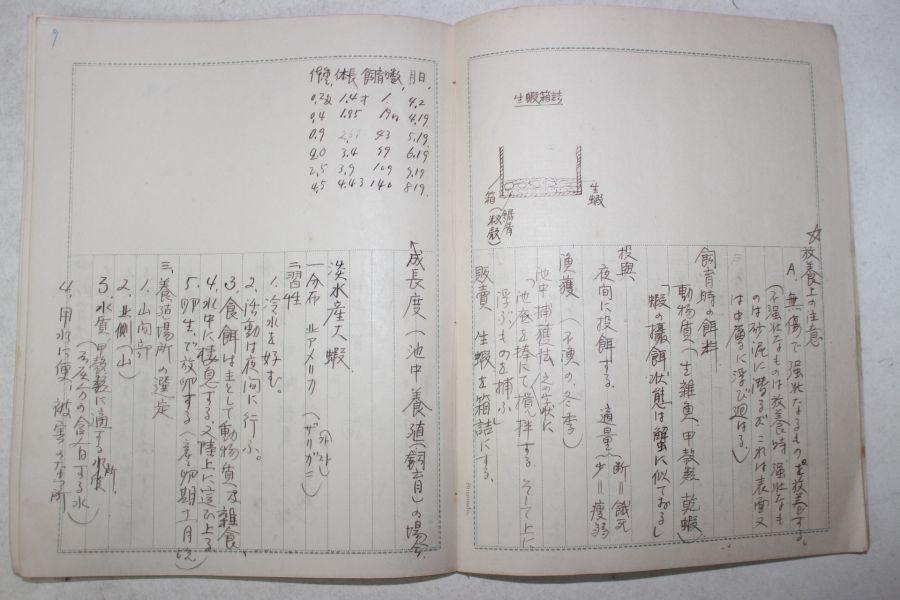 生蝦箱詰
生蝦
鋸屑
(籾殻)
箱
☆放養上の注意
A 無傷で強壮なるものを放養する。
(不強壮なものは放養時 強壮なも
のは砂泥に潜るが これは表面又
は中層に浮び廻はる)
飼育時の餌料
動物質(主 雑魚、甲殻類 乾蝦)
「蝦の攝餌状態は蟹に似ておる」
投與
夜間に投餌する 適量 断=餓死
少=瘦弱
漁獲 (不漁の冬季)
池中捕獲法
「池底を棒にて攪拌する そして上に
浮ぶものを捕ふ」
販賣 生蝦を箱詰にする。
9
体長 飼育日数 月日
0.2 1.4 1. 4.2
0.4 1.95 19 4.19.
0.9 43 5.19.
2.0 3.4 6.19
2.5 3.9 109 9.19
4.5 4.43 140 8.19.
成長度(池中養殖(飼育)の場合
淡水産大蝦
一 分布 北アメリカ (ザリガニ)
二 習性
1. 冷水を好む。
2. 活動は夜間に行ふ。
3. 食餌は主として動物質 及 雑食
4. 水中に棲息する 又 陸上に這ひ上る
5. 卵生で放卵する(産卵期十一月
三、養殖場所の選定
1. 山間部
2. 北側(山)
3. 水質 甲殻類に適する水質
(石灰分の含有する水)
4. 用水に便 被害のなき所